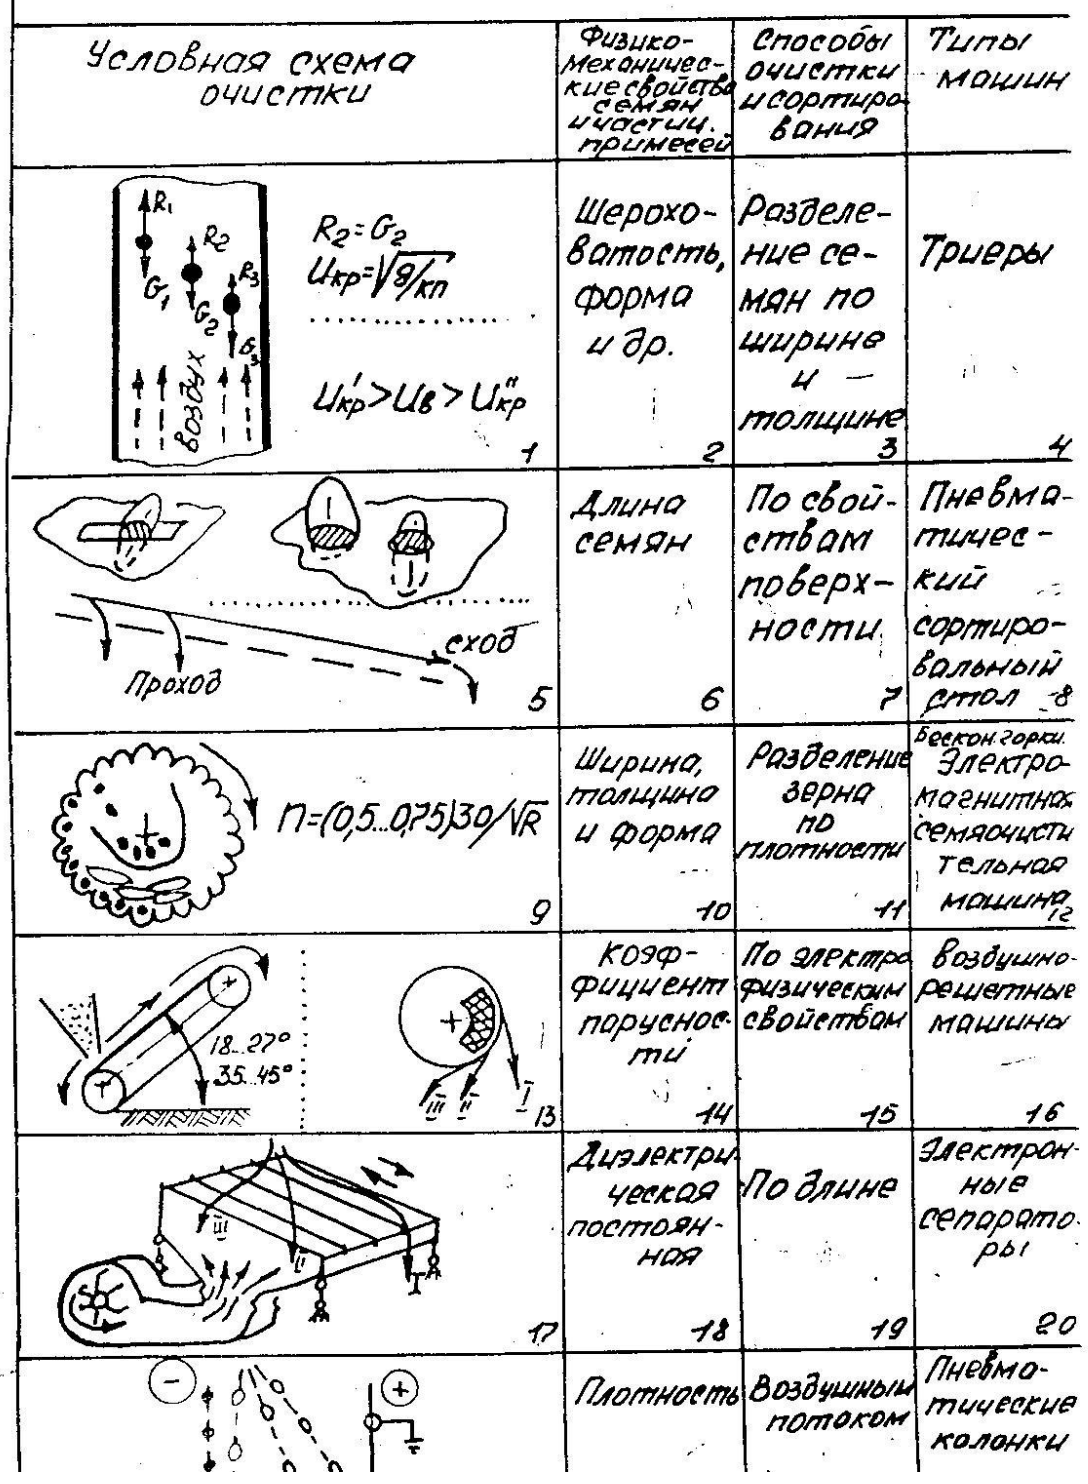 Условная схема
очистки
Физико-
механичес-
кие свойства
семян
и частиц.
примесей
Способы
очистки
и сортиро-
вания
Типы
машин
R₁
R₂
R₃
G₁
G₂
G₃
воздух
R₂=G₂
Uкр=√g/кп
U'кр>Uв>U"кр
1
Шерохо-
ватость,
форма
и др.
2
Разделе-
ние се-
мян по
ширине
и
толщине
3
Триеры
4
Проход
сход
5
Длина
семян
6
По свой-
ствам
поверх-
ности
7
Пневма-
тичес-
кий
сортиро-
вальный
стол
8
n=(0,5...0,75)30/√R
9
Ширина,
толщина
и форма
10
Разделение
зерна
по
плотности
11
Бескон. горки.
Электро-
магнитная
семяочисти
тельная
машина
12
18...27°
35...45°
III II I
13
Коэф-
фициент
паруснос-
ти
14
По электро
физическим
свойствам
15
Воздушно-
решетные
машины
16
III
II
I
17
Диэлектри-
ческая
постоян-
ная
18
По длине
19
Электрон-
ные
сепарато-
ры
20
- +
Плотность
Воздушным
потоком
Пневма-
тические
колонки